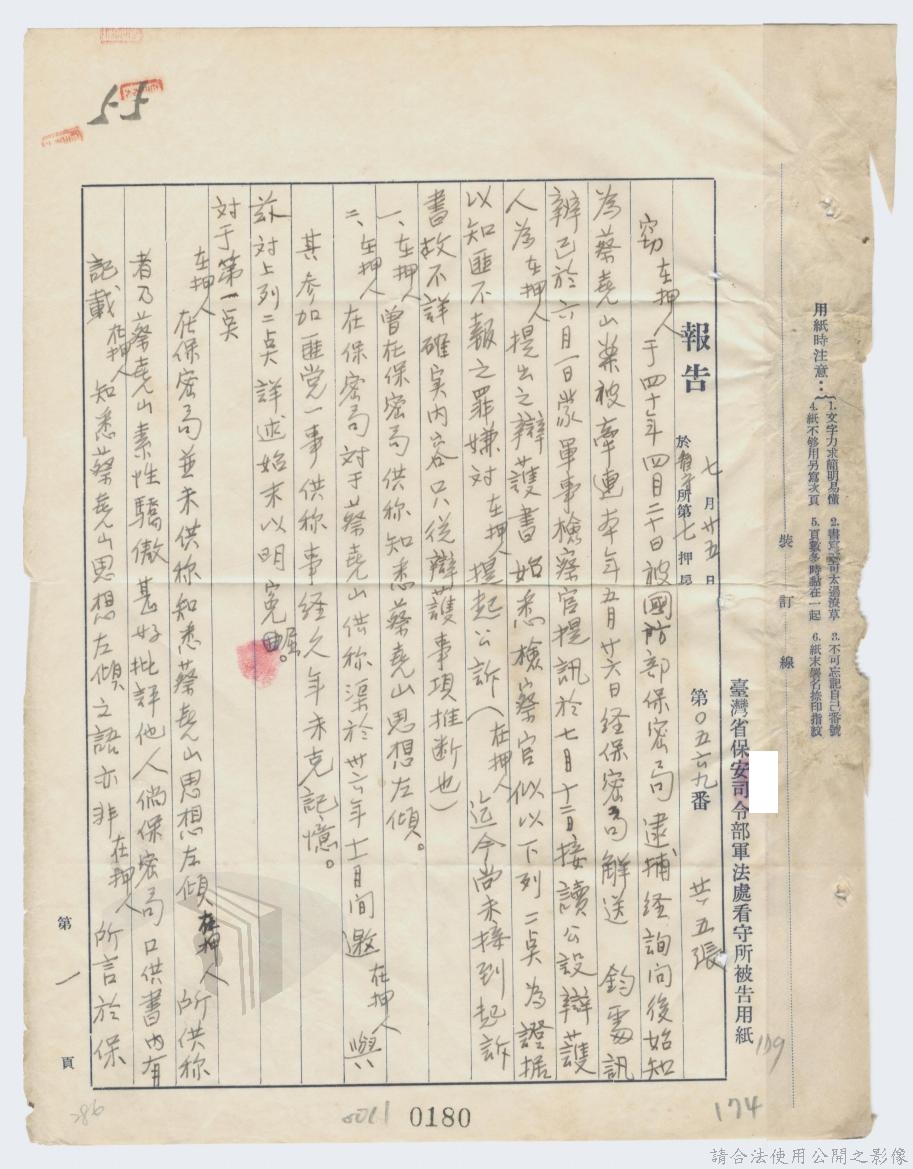 用紙時注意：
1.文字力求簡明易懂 2.書寫 可太過潦草 3.不可忘記自己番號
4.紙不够用另寫次頁 5.頁數多時黏在一起 6.紙末署名捺印指紋
裝 訂 線
臺灣省保安司令部軍法處看守所被告用紙
報告 七月廿五日 於看守所第七押房 第〇五六九番 共五張
竊在押人于四十年四月二十日被國防部保密局逮捕経詢问後始知
為蔡堯山案被牽連本年五月廿六日経保密局解送 鈞處訊
辦已於六月一日蒙軍事檢察官提訊於七月十 日接讀公設辯護
人為在押人提出之辯護書始悉檢察官似以下列二点為證据
以知匪不報之罪嫌对在押人提起公訴（在押人迄今尚未接到起訴
書故不詳確实内容只従辯護事項推断也）
一、在押人曾在保密局供称知悉蔡堯山思想左傾。
二、在押人在保密局对于蔡堯山供称渠於卅六年十一月间邀在押人與
其参加匪党一事供称事経久年未克記憶。
茲对上列二点詳述始末以明冤屈。
对于第一点
在押人在保密局並未供称知悉蔡堯山思想左傾在押人所供称
者乃蔡堯山素性驕傲甚好批評他人倘保密局口供書内有
記載在押人知悉蔡堯山思想左傾之語亦非在押人所言於保
第 一 頁
55
109
174
286
0180
請合法使用公開之影像